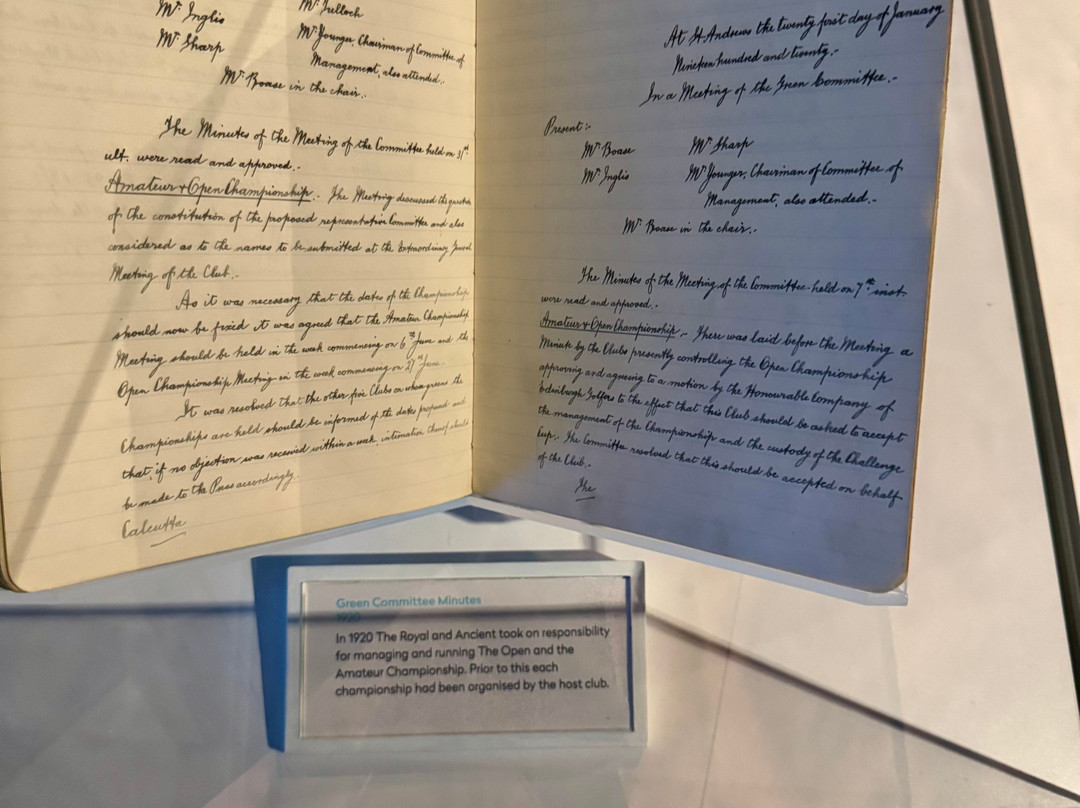 Mr. Inglis
Mr. Tulloch
Mr. Sharp
Mr. Younger, Chairman of Committee of
Management, also attended.
Mr. Boase in the chair.
The Minutes of the Meeting of the Committee held on 31st
ult. were read and approved.-
Amateur & Open Championship.- The Meeting discussed the question
of the constitution of the proposed representative Committee and also
considered as to the names to be submitted at the Extraordinary General
Meeting of the Club.-
As it was necessary that the dates of the Championships
should now be fixed it was agreed that the Amateur Championship
Meeting should be held in the week commencing on 6th June and the
Open Championship Meeting in the week commencing on 27th June.-
It was resolved that the other five Clubs on whose greens the
Championships are held should be informed of the dates proposed and
that, if no objection was received within a week, intimation thereof should
be made to the Press accordingly.
Calcutta
At St. Andrews the twenty first day of January
Nineteen hundred and twenty.-
In a Meeting of the Green Committee.-
Present:-
Mr. Boase
Mr. Sharp
Mr. Inglis
Mr. Younger, Chairman of Committee of
Management, also attended.-
Mr. Boase in the chair.-
The Minutes of the Meeting of the Committee held on 7th inst.
were read and approved.-
Amateur & Open Championship.- There was laid before the Meeting a
Minute by the Clubs presently controlling the Open Championship
approving and agreeing to a motion by the Honourable Company of
Edinburgh Golfers to the effect that this Club should be asked to accept
the management of the Championship and the custody of the Challenge
Cup.- The Committee resolved that this should be accepted on behalf
of the Club.-
The
Green Committee Minutes
1920
In 1920 The Royal and Ancient took on responsibility
for managing and running The Open and the
Amateur Championship. Prior to this each
championship had been organised by the host club.